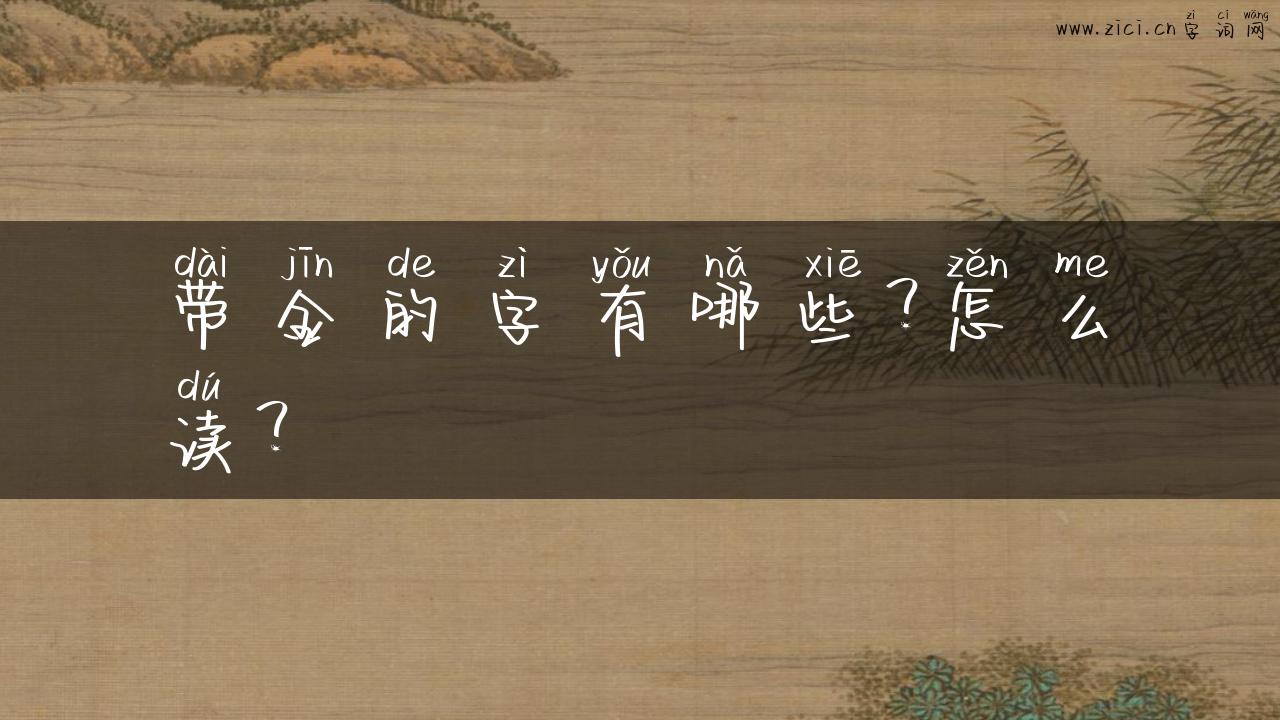 zì cí wǎng
www.zici.cn 字词网
dài jīn de zì yǒu nǎ xiē zěn me
带金的字有哪些？怎么
dú
读？